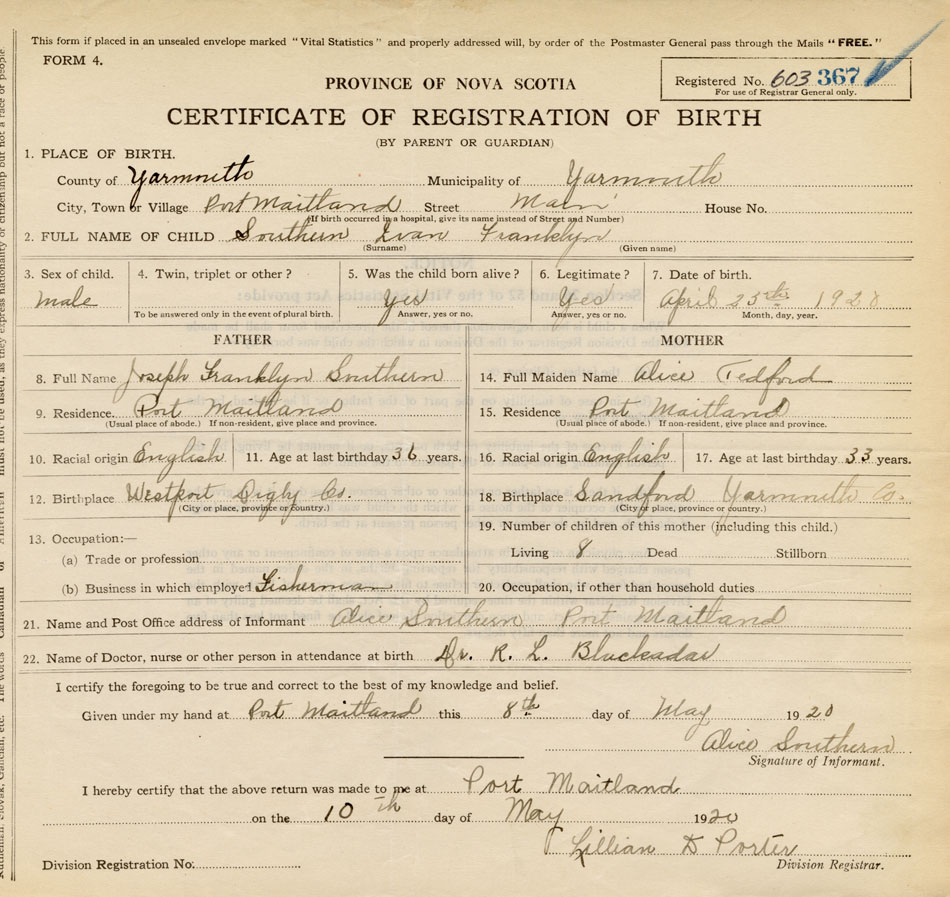 This form if placed in an unsealed envelope marked "Vital Statistics" and properly addressed will, by order of the Postmaster General pass through the Mails "FREE."
FORM 4.
Registered No. 603 367
For use of Registrar General only.
PROVINCE OF NOVA SCOTIA
CERTIFICATE OF REGISTRATION OF BIRTH
(BY PARENT OR GUARDIAN)
1. PLACE OF BIRTH.
County of Yarmouth Municipality of Yarmouth
City, Town or Village Port Maitland Street Main House No.
(If birth occurred in a hospital, give its name instead of Street and Number)
2. FULL NAME OF CHILD Southern Ivan Franklyn
(Surname) (Given name)
3. Sex of child. 4. Twin, triplet or other? 5. Was the child born alive? 6. Legitimate? 7. Date of birth.
Male Yes Yes April 25th 1920
To be answered only in the event of plural birth. Answer, yes or no. Answer, yes or no. Month, day, year.
FATHER MOTHER
8. Full Name Joseph Franklyn Southern 14. Full Maiden Name Alice Tedford
9. Residence. Port Maitland 15. Residence Port Maitland
(Usual place of abode.) If non-resident, give place and province. (Usual place of abode.) If non-resident, give place and province.
10. Racial origin English 11. Age at last birthday 36 years. 16. Racial origin English 17. Age at last birthday 33 years.
12. Birthplace Westport Digby Co. 18. Birthplace Sandford Yarmouth Co.
(City or place, province or country.) (City or place, province or country.)
13. Occupation:— 19. Number of children of this mother (including this child.)
(a) Trade or profession Living 8 Dead Stillborn
(b) Business in which employed Fisherman 20. Occupation, if other than household duties
21. Name and Post Office address of Informant Alice Southern Port Maitland
22. Name of Doctor, nurse or other person in attendance at birth Dr. R. L. Blackadar
I certify the foregoing to be true and correct to the best of my knowledge and belief.
Given under my hand at Port Maitland this 8th day of May 1920
Alice Southern
Signature of Informant.
I hereby certify that the above return was made to me at Port Maitland
on the 10th day of May 1920
Lillian D Porter
Division Registration No: Division Registrar.